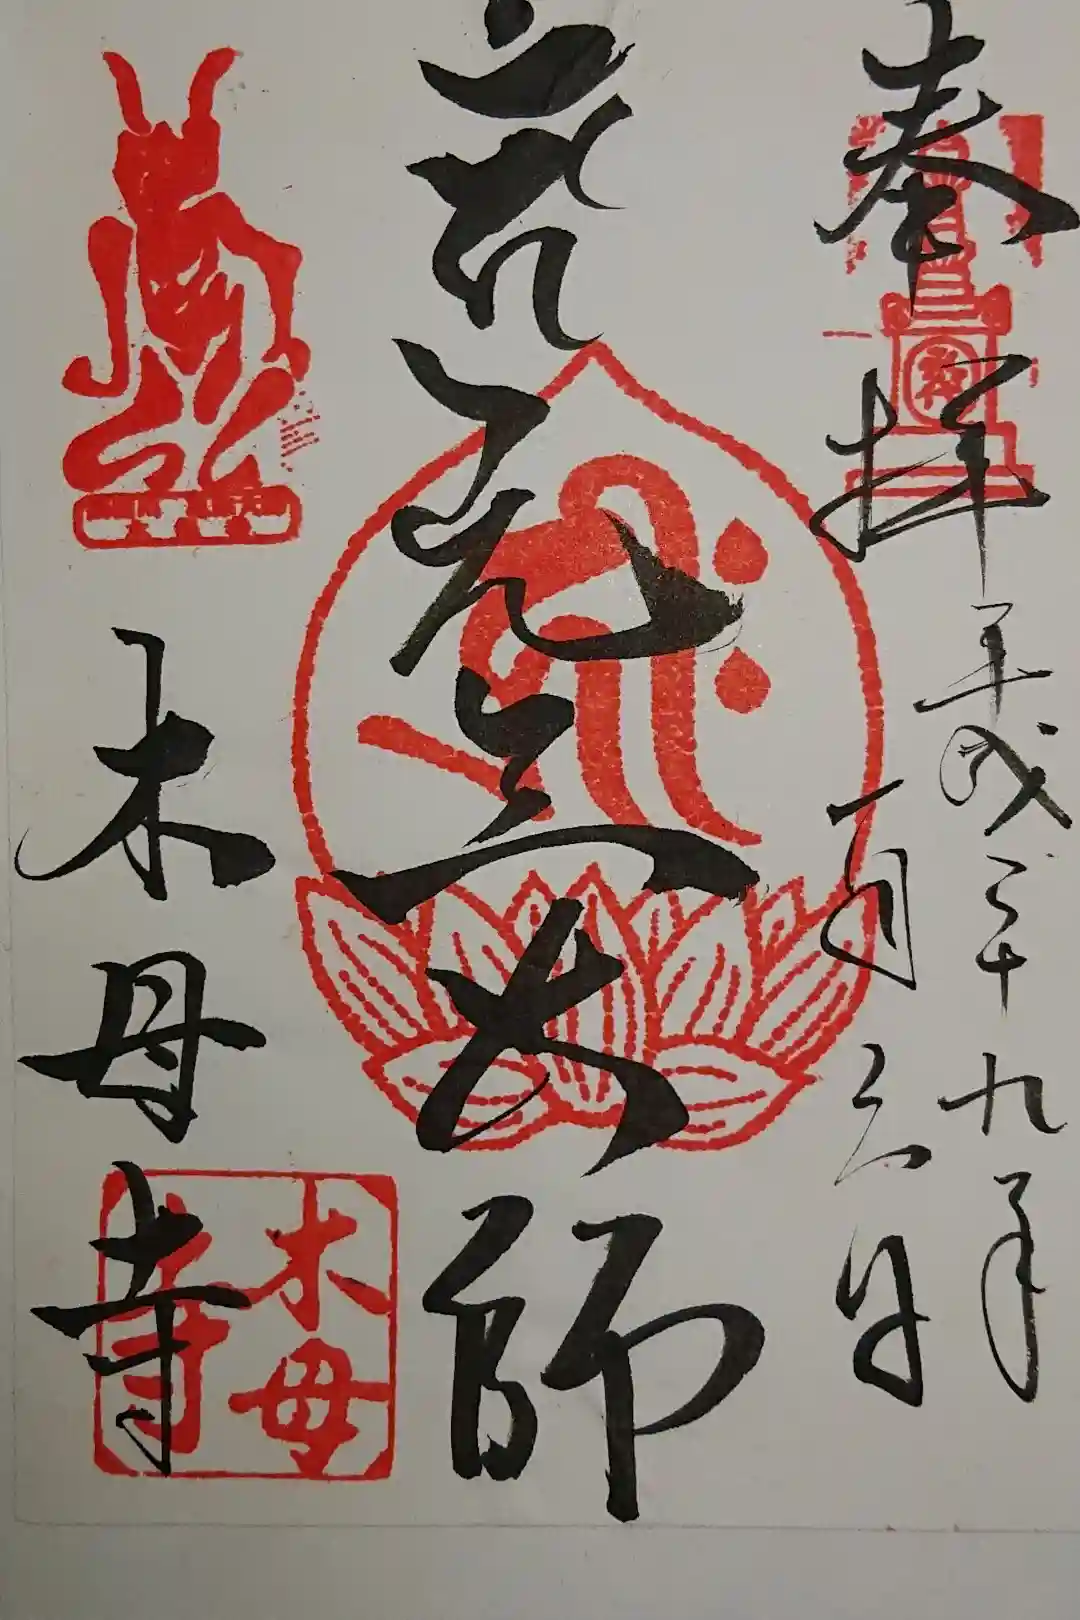 奉拝
平成二十九年
一月六日
元三大師
木母寺
木母寺